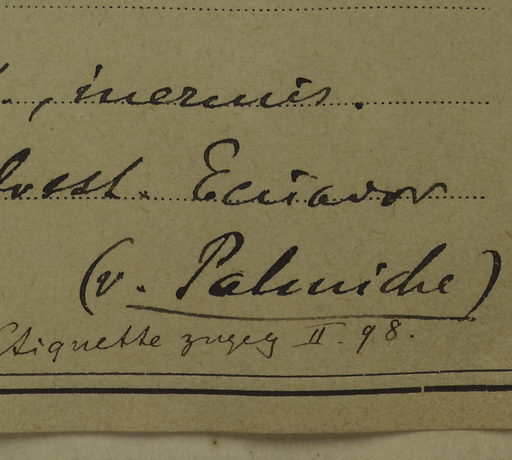 , inermis.
Ecuador
(v. Palmiche)
Etiquette zugeg II. 98.